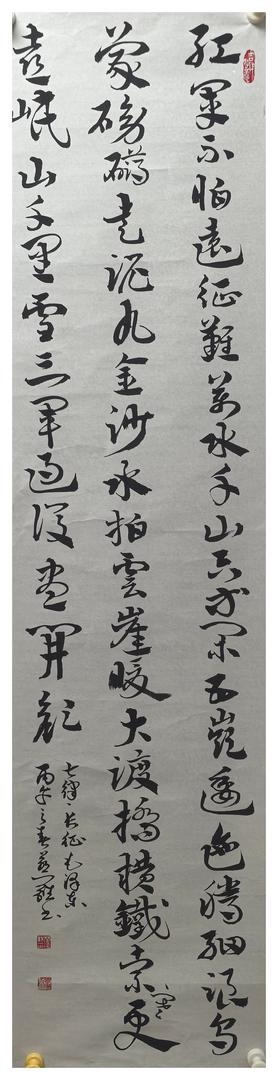 紅軍不怕遠征難萬水千山只等閑五嶺逶迤騰細浪烏
蒙磅礴走泥丸金沙水拍雲崖暖大渡橋橫鐵索寒更
喜岷山千里雪三軍過後盡開顏
七律·長征毛澤東
丙午之春書